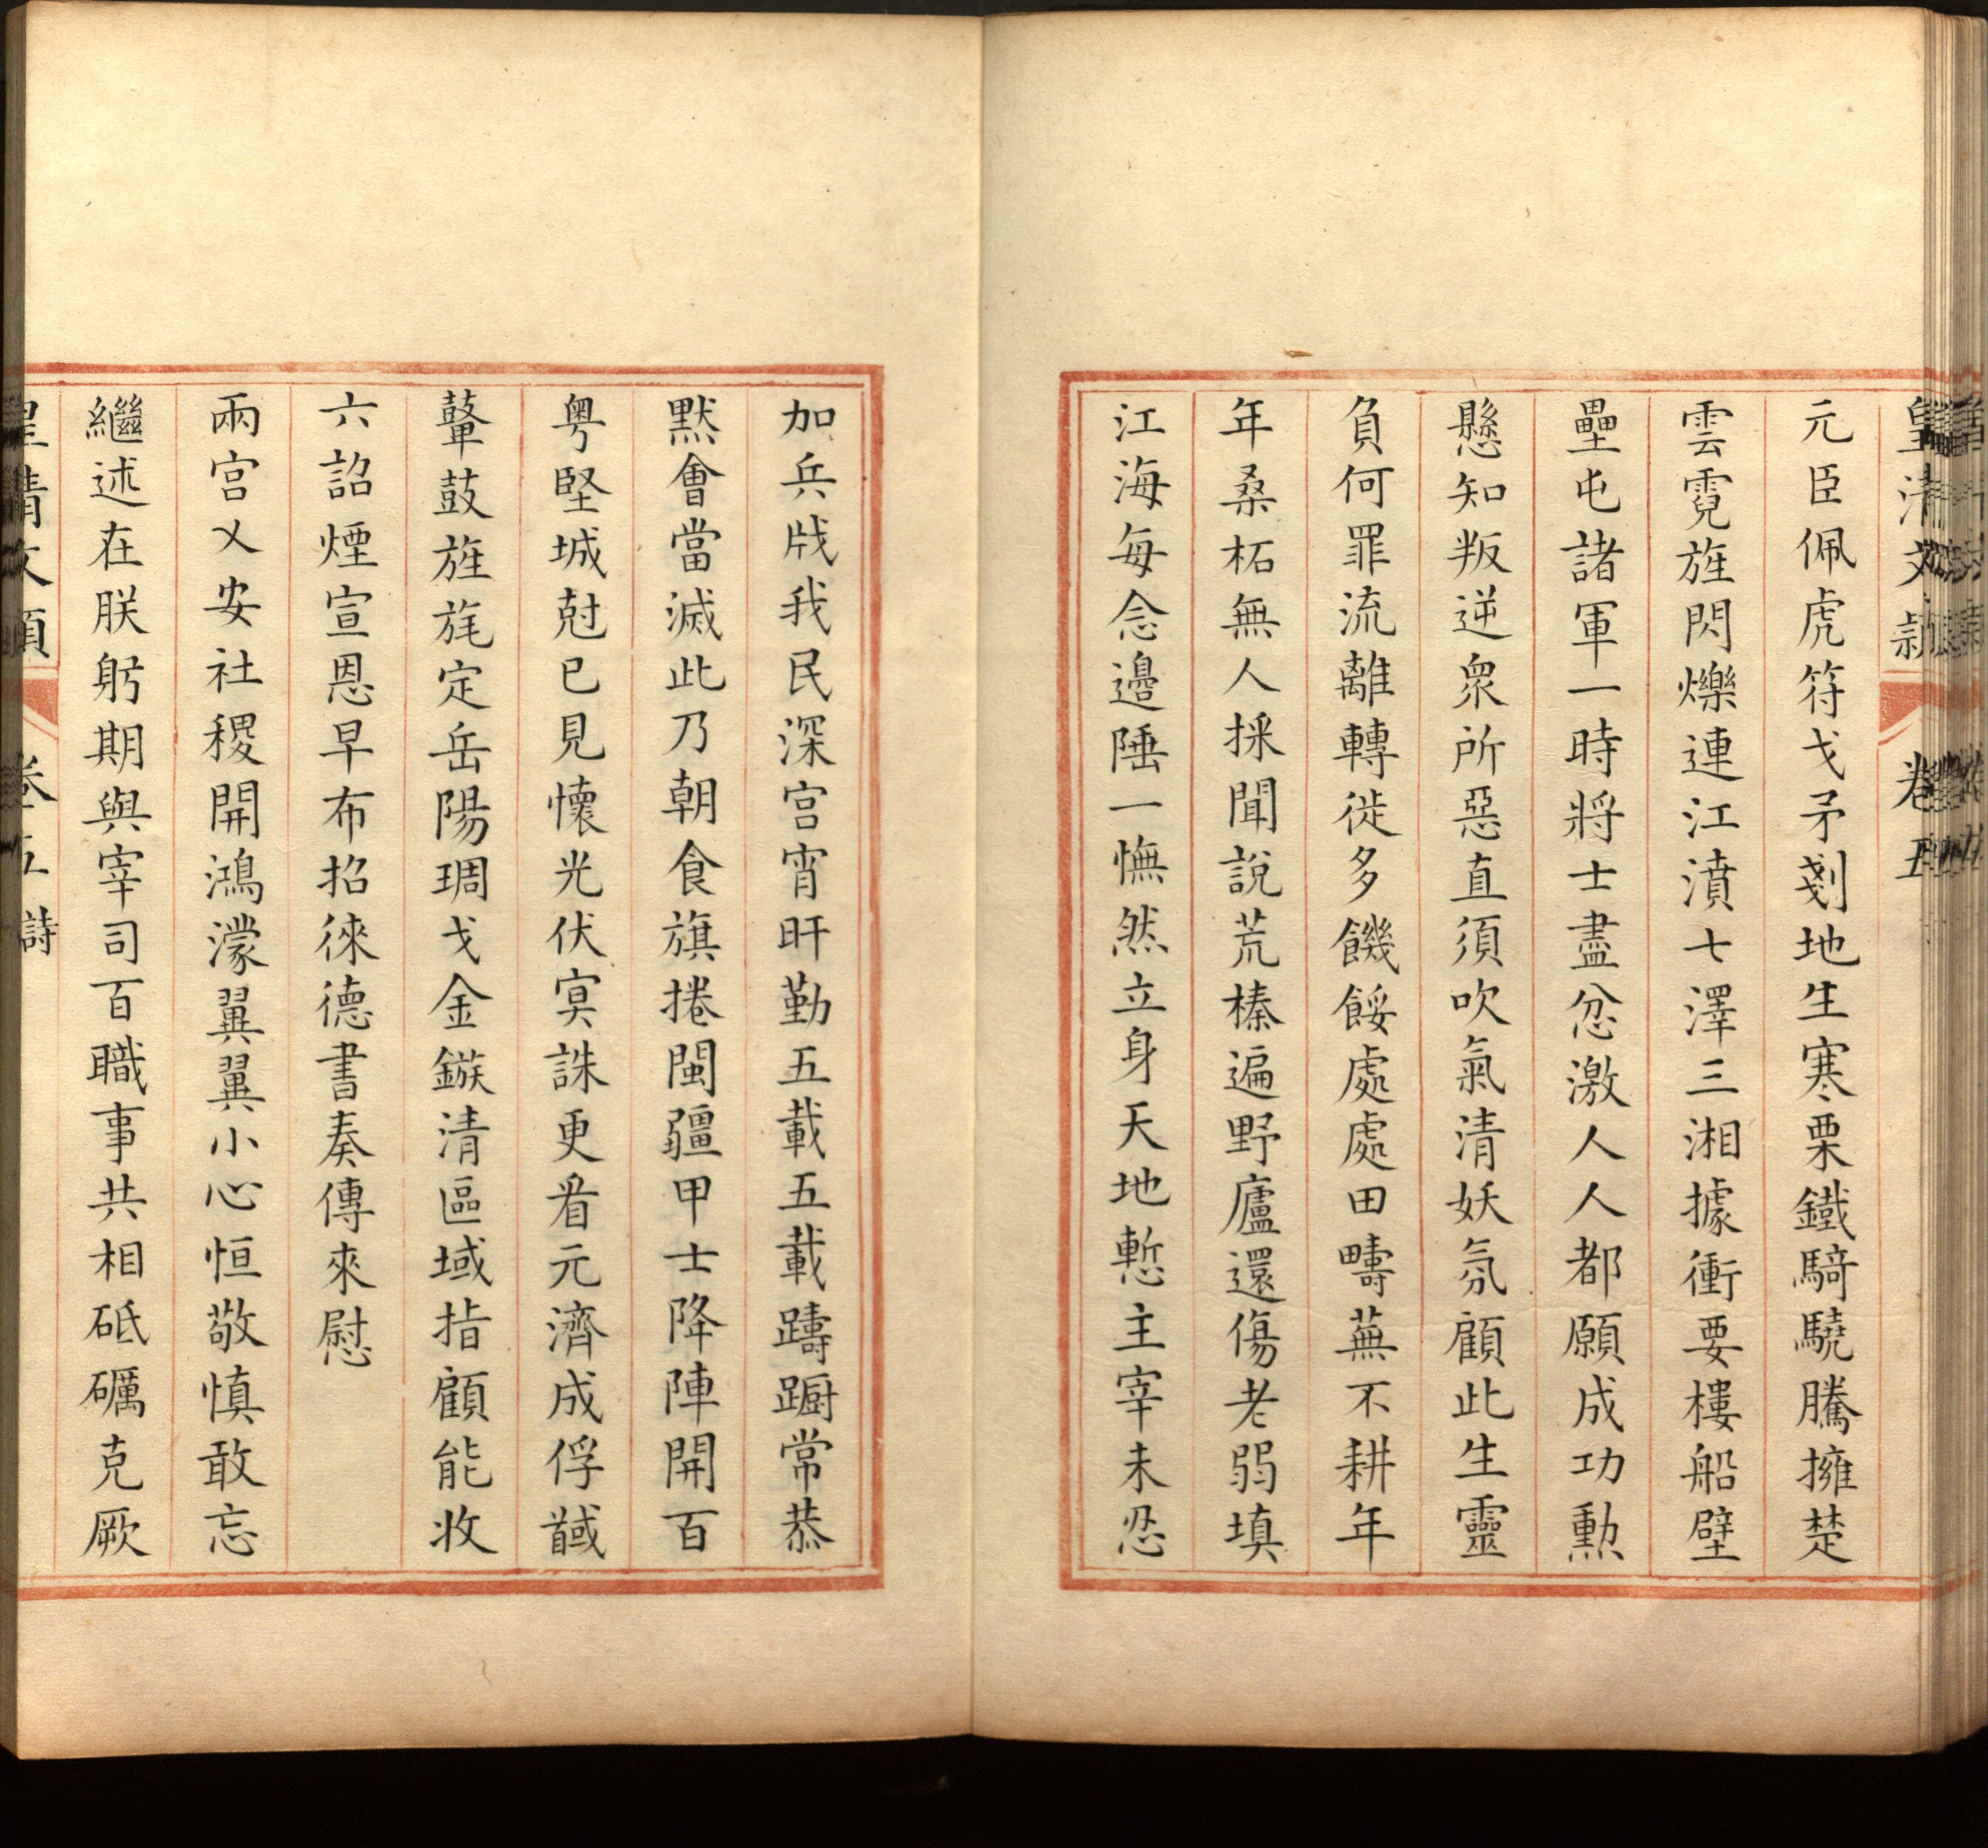 皇清文穎 卷五
元臣佩虎符戈矛剗地生寒栗鐵騎驍騰擁楚
雲霓旌閃爍連江濆七澤三湘據衝要樓船壁
壘屯諸軍一時將士盡忿激人人都願成功勲
懸知叛逆衆所惡直須吹氣清妖氛顧此生靈
負何罪流離轉徙多饑餒處處田疇蕪不耕年
年桑柘無人採聞說荒榛遍野廬還傷老弱填
江海每念邊陲一憮然立身天地慙主宰未忍
加兵戕我民深宮宵旰勤五載五載躊躕常恭
默會當滅此乃朝食旗捲閩疆甲士降陣開百
粤堅城尅已見懷光伏冥誅更看元濟成俘馘
鼙鼓旌旄定岳陽琱戈金鏃清區域指顧能收
六詔煙宣恩早布招徠德書奏傳來慰
兩宮乂安社稷開鴻濛翼翼小心恒敬慎敢忘
繼述在朕躬期與宰司百職事共相砥礪克厥
皇清文穎 卷五 詩